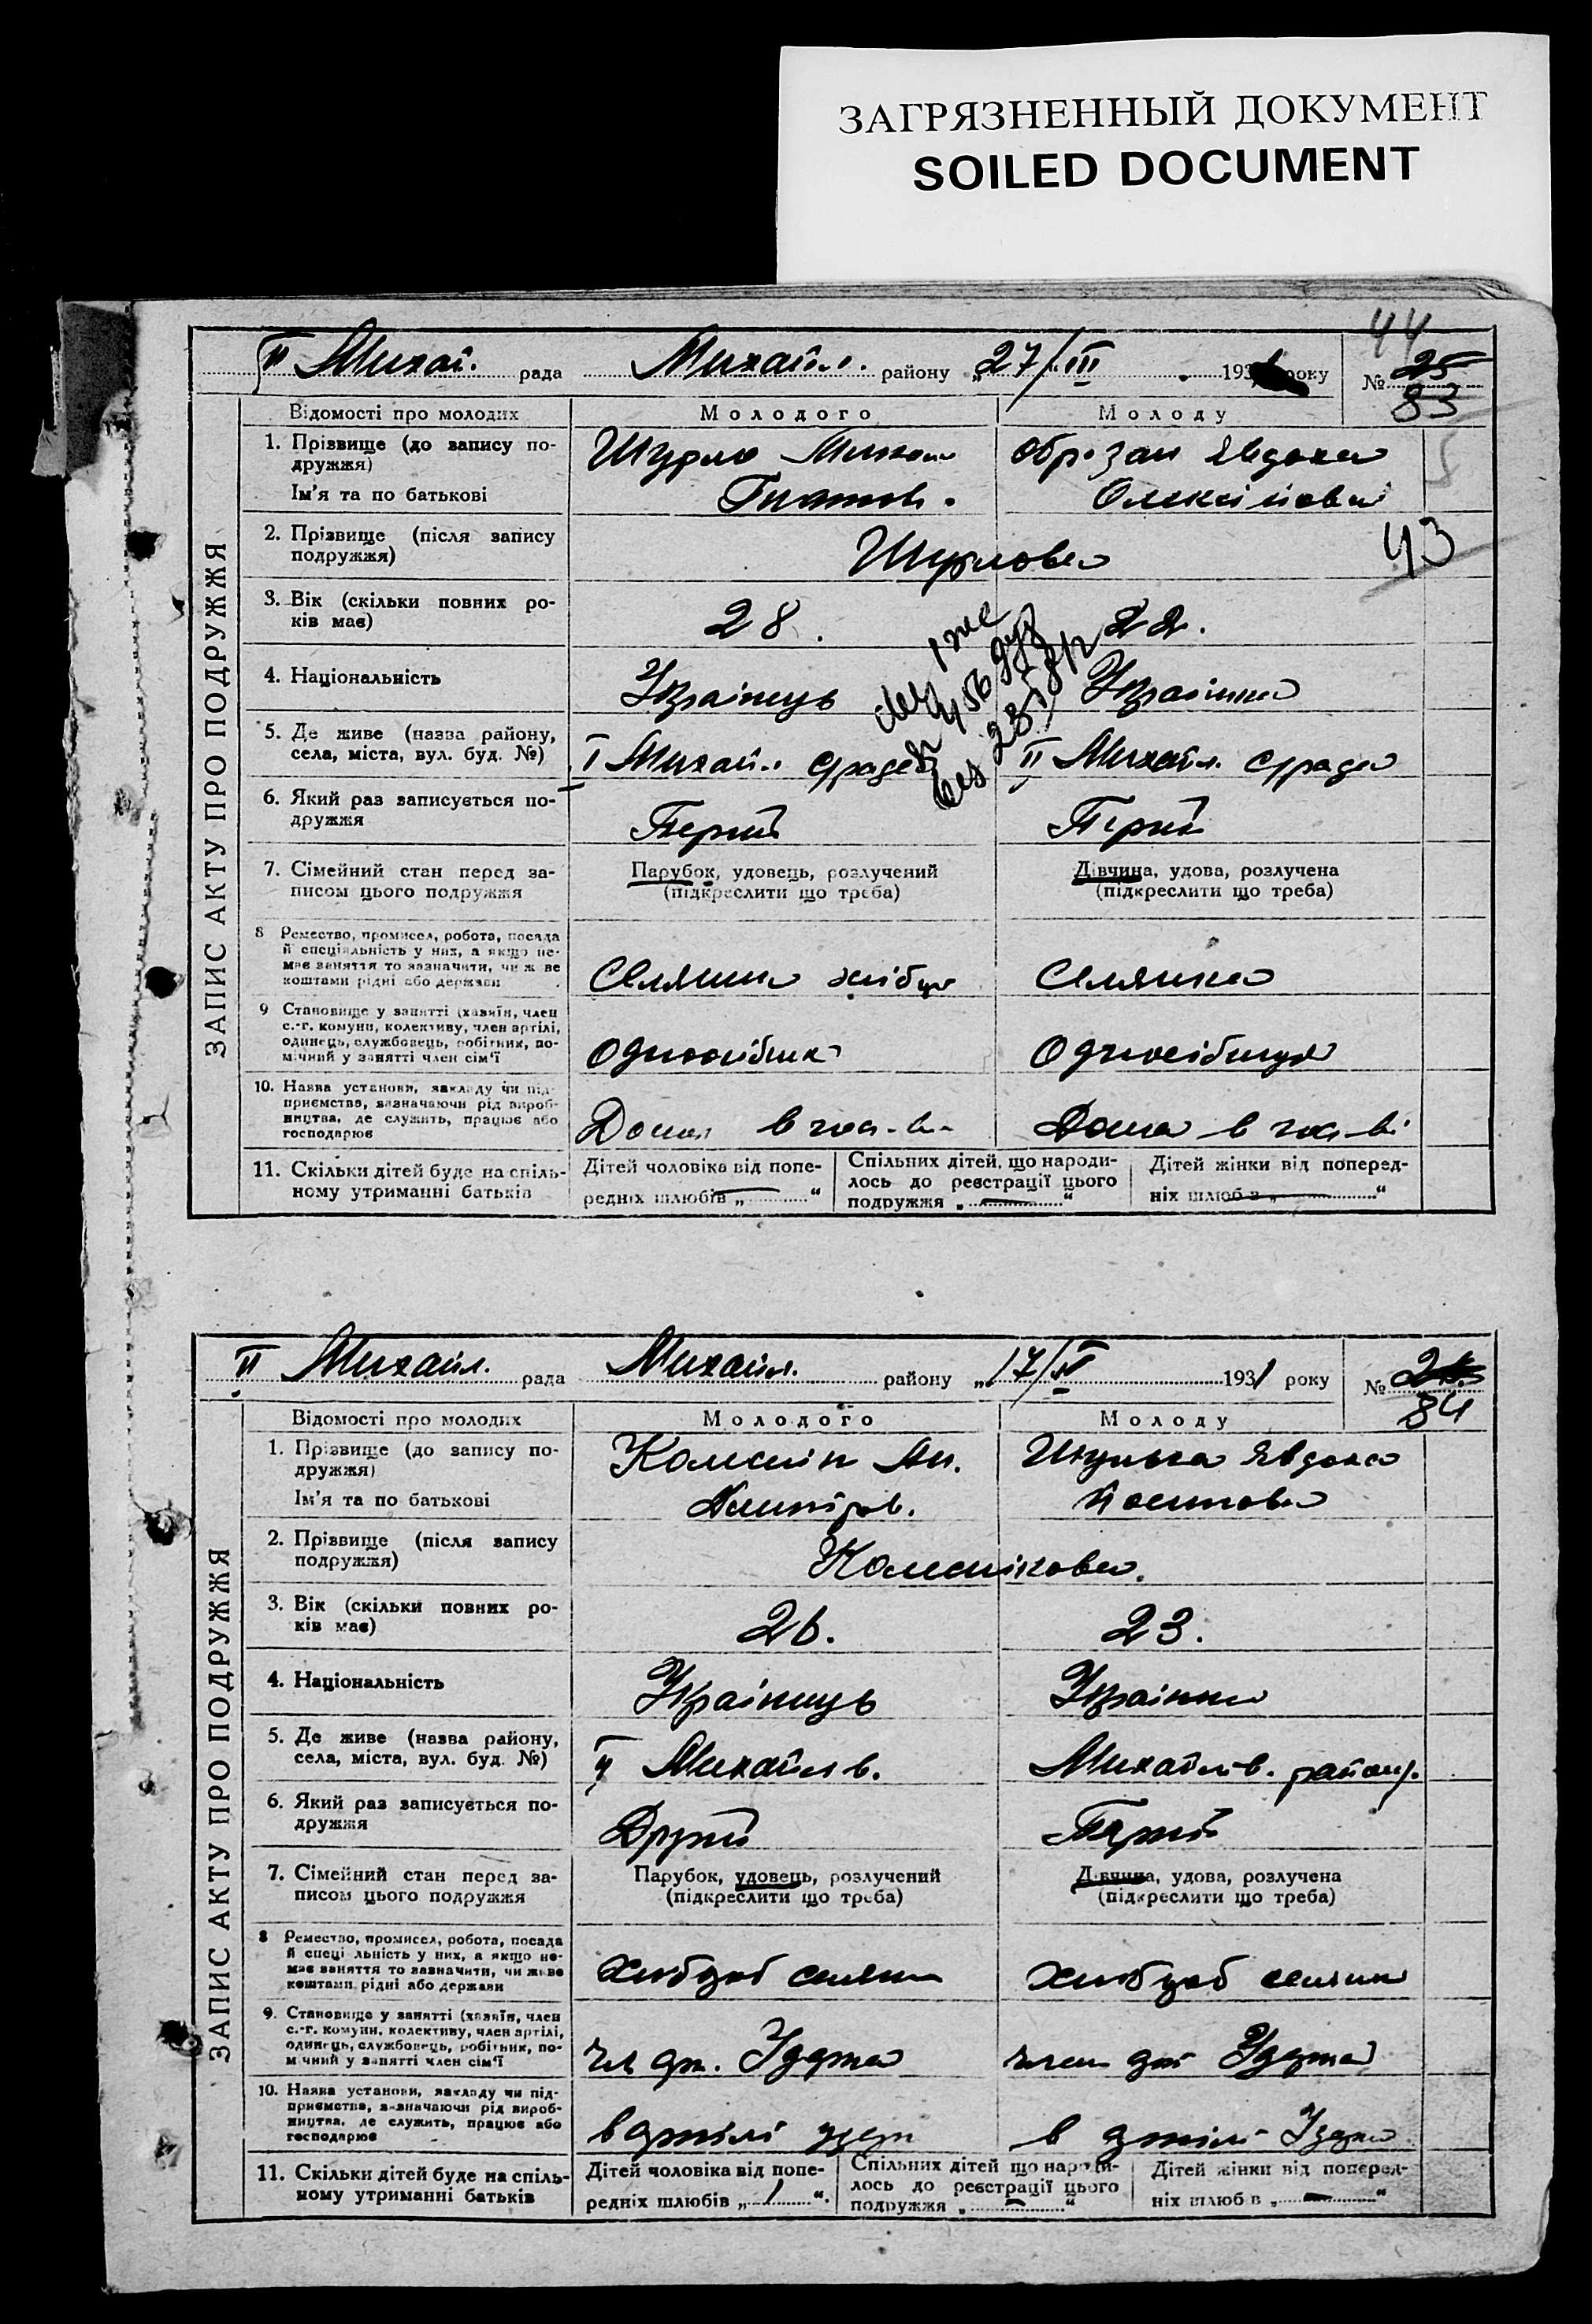 ЗАГРЯЗНЕННЫЙ ДОКУМЕНТ
SOILED DOCUMENT
44
II Михай. рада Михайл. району „27/III 193 року № 25
83
Відомості про молодих Молодого Молоду
1. Прізвище (до запису по- Шурло Образан Явдоха
дружжя)
Ім'я та по батькові Гнатов. Олексіївна
2. Прізвище (після запису 43
подружжя) Шурлова
3. Вік (скільки повних ро- 28. 22.
ків має)
4. Національність Українець Українка
5. Де живе (назва району,
села, міста, вул. буд. №) I Михайл. с/рада II Михайл. с/рада
6. Який раз записується по-
дружжя Перший Перший
7. Сімейний стан перед за- Парубок, удовець, розлучений Дівчина, удова, розлучена
писом цього подружжя (підкреслити що треба) (підкреслити що треба)
8 Ремество, промисел, робота, посада
й спеціяльність у них, а якщо не-
має заняття то зазначити, чи ж ве
коштами рідні або держави Селянин Селянка
9 Становище у занятті (хазяїн, член
с.-г. комуни, колективу, член артілі,
одинець, службовець, робітник, по- Одноосібник Одноосібниця
мічний у занятті член сім'ї
10. Назва установи, закладу чи під-
приємства, зазначаючи рід вироб-
ництва, де служить, працює або Дома в госп-ві Дома в госп-ві
господарює
11. Скільки дітей буде на спіль- Дітей чоловіка від попе- Спільних дітей, що народи- Дітей жінки від поперед-
ному утриманні батьків редніх шлюбів „ — “ лось до реєстрації цього ніх шлюбів „ — “
подружжя „ — “
ЗАПИС АКТУ ПРО ПОДРУЖЖЯ
II Михайл. рада Михайл. району „17/ 1931 року №
84
Відомості про молодих Молодого Молоду
1. Прізвище (до запису по- Явдоха
дружжя)
Ім'я та по батькові Дмитров. Йосипова
2. Прізвище (після запису
подружжя)
3. Вік (скільки повних ро- 26. 23.
ків має)
4. Національність Українець Українка
5. Де живе (назва району,
села, міста, вул. буд. №) II Михайлів. Михайлів. району.
6. Який раз записується по-
дружжя Другий Перший
7. Сімейний стан перед за- Парубок, удовець, розлучений Дівчина, удова, розлучена
писом цього подружжя (підкреслити що треба) (підкреслити що треба)
8 Ремество, промисел, робота, посада
й спеці льність у них, а якщо не-
має заняття то зазначити, чи живе
коштами рідні або держави Хлібороб селянин Хлібороб селянин
9. Становище у занятті (хазяїн, член
с.-г. комуни, колективу, член артілі,
одинець, службовець, робітник, по-
мічний у занятті член сім'ї член
10. Назва установи, закладу чи під-
приємства, зазначаючи рід вироб-
ництва, де служить, працює або в артілі в артілі
господарює
11. Скільки дітей буде на спіль- Дітей чоловіка від попе- Спільних дітей що народи- Дітей жінки від поперед-
ному утриманні батьків редніх шлюбів „ 1 “. лось до реєстрації цього ніх шлюб в „ — “
подружжя „ — “
ЗАПИС АКТУ ПРО ПОДРУЖЖЯ